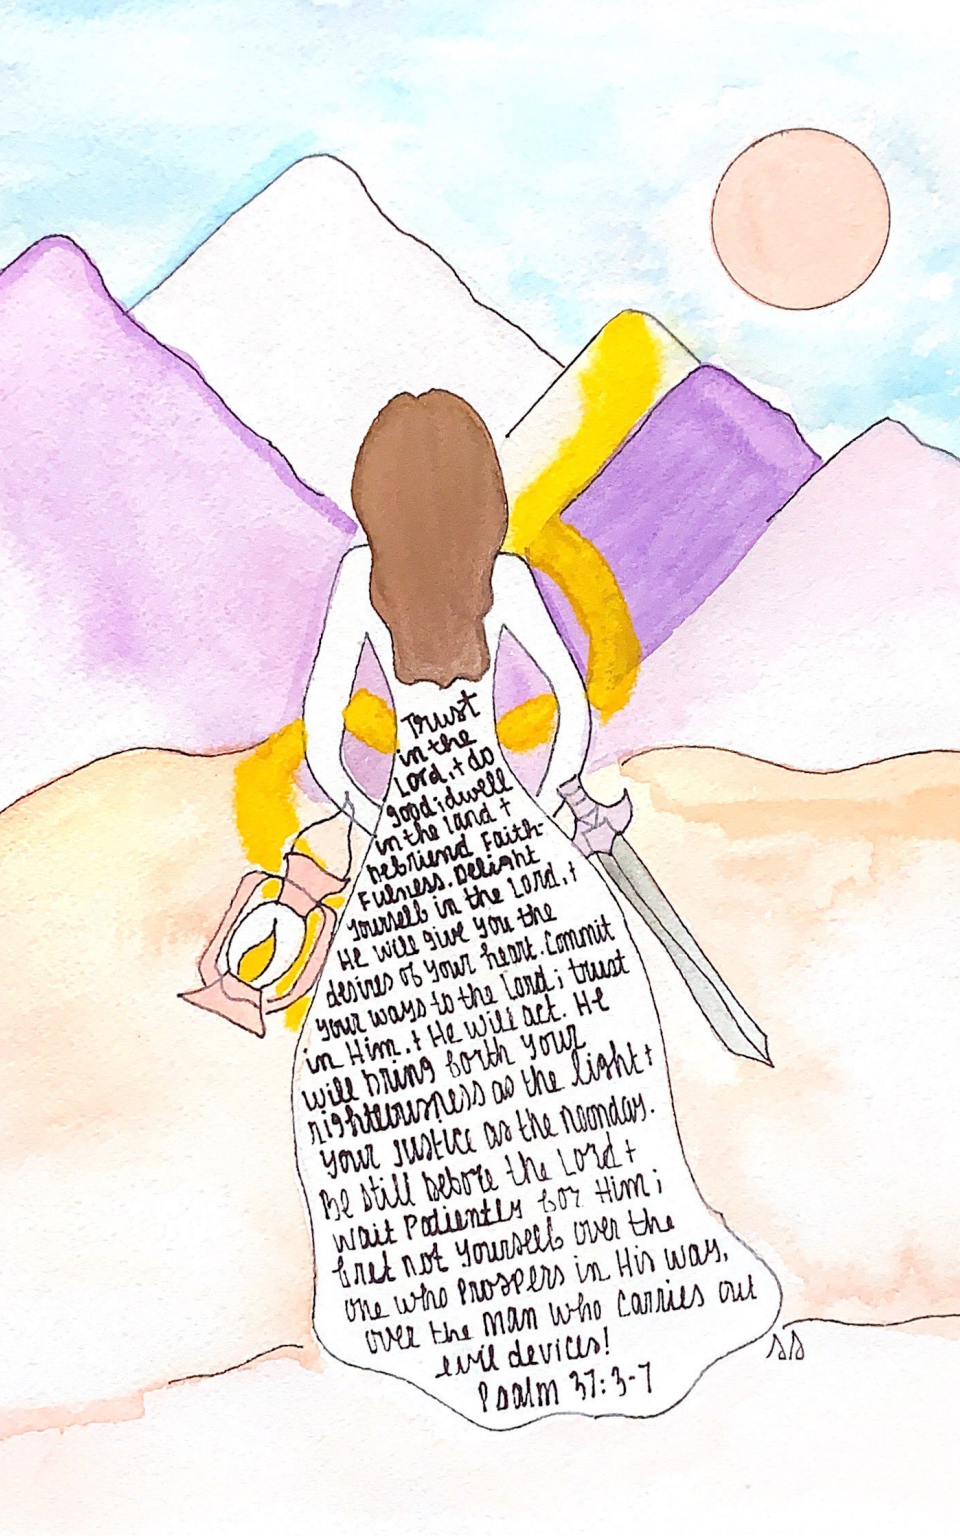 Trust
in the
Lord, + do
good; dwell
in the land +
befriend Faith-
Fulness. Delight
Yourself in the Lord, +
He will give you the
desires of your heart. Commit
your ways to the Lord; trust
in Him, + He will act. He
will bring forth your
righteousness as the light +
your justice as the noonday.
Be still before the Lord +
wait Patiently for Him;
fret not yourself over the
one who Prospers in His way,
over the man who carries out
evil devices!
Psalm 37:3-7
SS